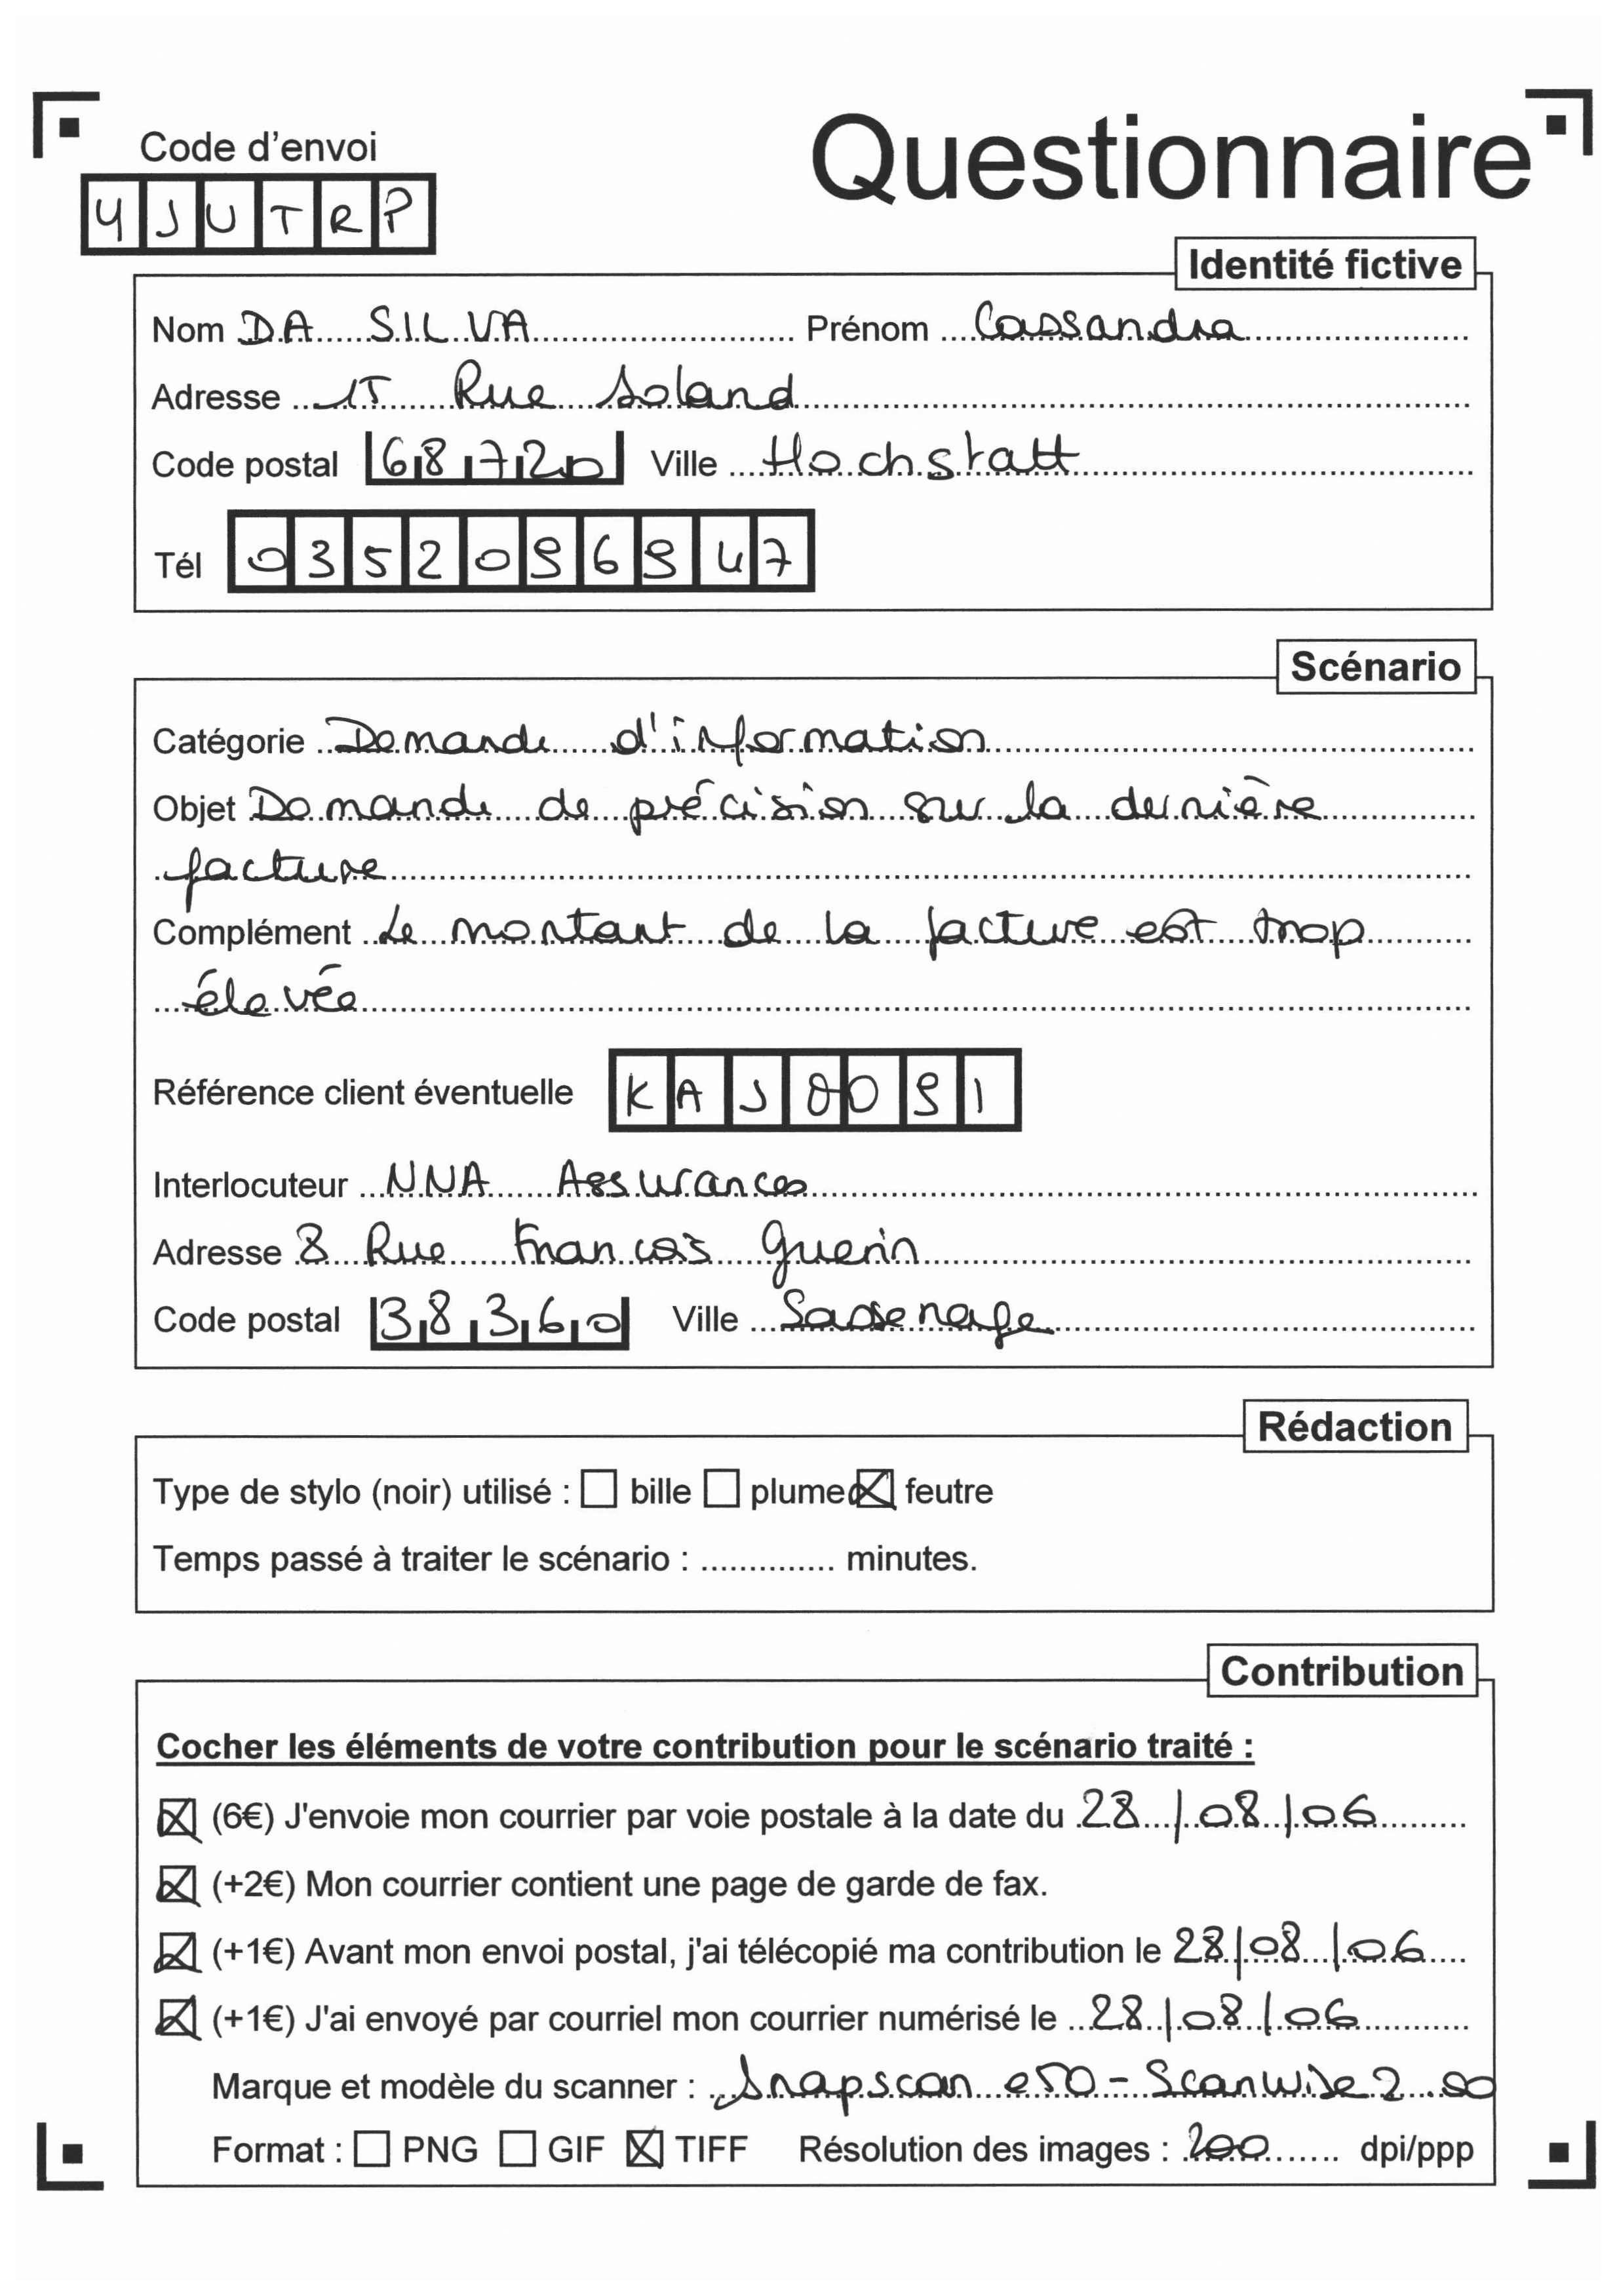 Code d'envoi
Questionnaire
4JUTRP
Identité fictive
Nom DA SILVA Prénom Cassandra
Adresse 15 Rue Soland
Code postal 68720 Ville Hochstatt
Tél 0352096947
Scénario
Catégorie Demande d'information
Objet Demande de précision sur la dernière
facture
Complément Le montant de la facture est trop
élevée
Référence client éventuelle KAJ0091
Interlocuteur NNA Assurances
Adresse 8 Rue Francois Guerin
Code postal 38360 Ville Sassenage
Rédaction
Type de stylo (noir) utilisé : bille plume feutre
Temps passé à traiter le scénario : .............. minutes.
Contribution
Cocher les éléments de votre contribution pour le scénario traité :
(6€) J'envoie mon courrier par voie postale à la date du 28/08/06
(+2€) Mon courrier contient une page de garde de fax.
(+1€) Avant mon envoi postal, j'ai télécopié ma contribution le 28/08/06
(+1€) J'ai envoyé par courriel mon courrier numérisé le 28/08/06
Marque et modèle du scanner : Snapscan e50 - Scanwise 2.00
Format : PNG GIF TIFF Résolution des images : 200 dpi/ppp